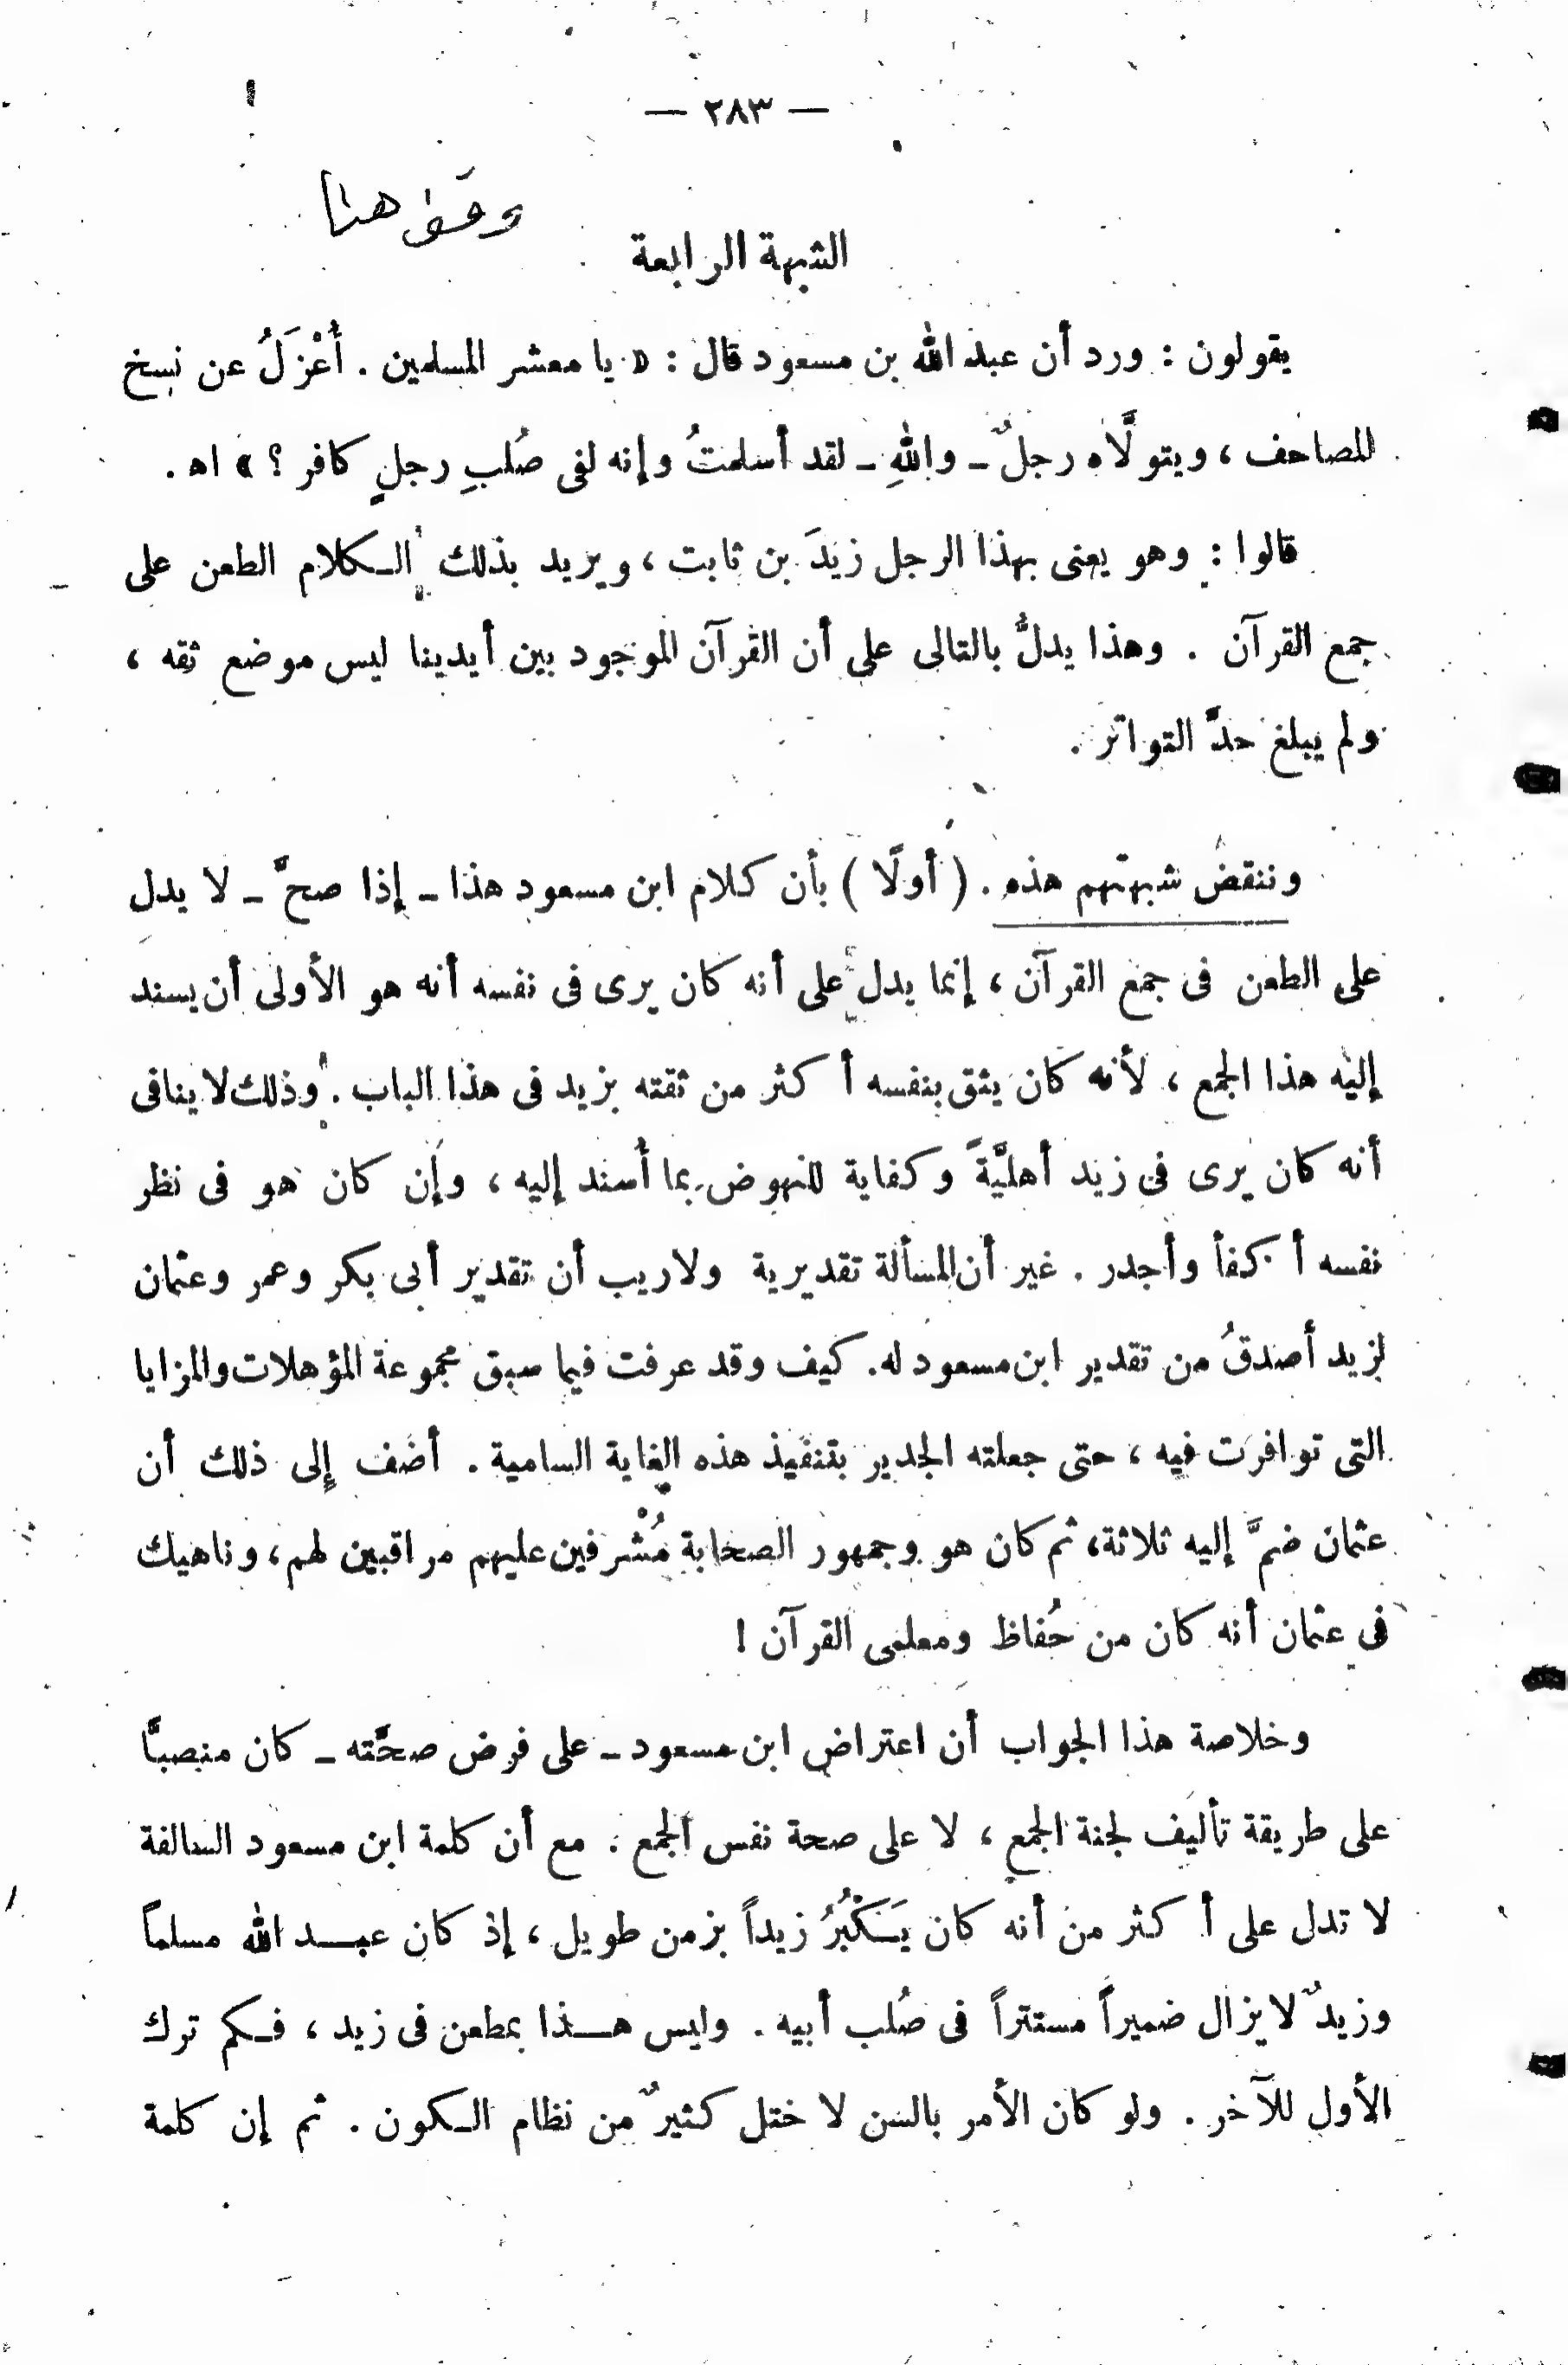 — ٢٨٣ —
وقف هنا
الشبهة الرابعة
يقولون : ورد أن عبد الله بن مسعود قال : « يا معشر المسلمين . أُعْزَلُ عن نسخ
المصاحف ، ويتولَّاه رجلٌ ـ واللهِ ـ لقد أسلمتُ وإنه لفى صُلبِ رجلٍ كافر ؟ » اه .
قالوا : وهو يعنى بهذا الرجل زيدَ بن ثابت ، ويريد بذلك الكلام الطعن على
جمع القرآن . وهذا يدلُّ بالتالى على أن القرآن الموجود بين أيدينا ليس موضع ثقه ،
ولم يبلغ حدَّ التواتر .
وننقض شبهتهم هذه . ( أولًا ) بأن كلام ابن مسعود هذا ـ إذا صحَّ ـ لا يدل
على الطعن فى جمع القرآن ، إنما يدل على أنه كان يرى فى نفسه أنه هو الأولى أن يسند
إليه هذا الجمع ، لأنه كان يثق بنفسه أكثر من ثقته بزيد فى هذا الباب . وذلك لا ينافى
أنه كان يرى فى زيد أهليَّةً وكفاية للنهوض بما أُسند إليه ، وإن كان هو فى نظر
نفسه أكفأ وأجدر . غير أن المسألة تقديرية ولا ريب أن تقدير أبى بكر وعمر وعثمان
لزيد أصدقُ من تقدير ابن مسعود له . كيف وقد عرفت فيما سبق مجموعة المؤهلات والمزايا
التى توافرت فيه ، حتى جعلته الجدير بتنفيذ هذه الغاية السامية . أضف إلى ذلك أن
عثمان ضمَّ إليه ثلاثة ، ثم كان هو وجمهور الصحابة مُشْرفين عليهم مراقبين لهم ، وناهيك
فى عثمان أنه كان من حُفاظ ومعلمى القرآن !
وخلاصة هذا الجواب أن اعتراض ابن مسعود ـ على فرض صحَّته ـ كان منصبًّا
على طريقة تأليف لجنة الجمع ، لا على صحة نفس الجمع . مع أن كلمة ابن مسعود السالفة
لا تدل على أكثر من أنه كان يَكْبُرُ زيداً بزمن طويل ، إذ كان عبد الله مسلماً
وزيدٌ لا يزال ضميراً مستتراً فى صُلب أبيه . وليس هذا بمطعن فى زيد ، فكم ترك
الأول للآخر . ولو كان الأمر بالسن لاختل كثيرٌ من نظام الكون . ثم إن كلمة